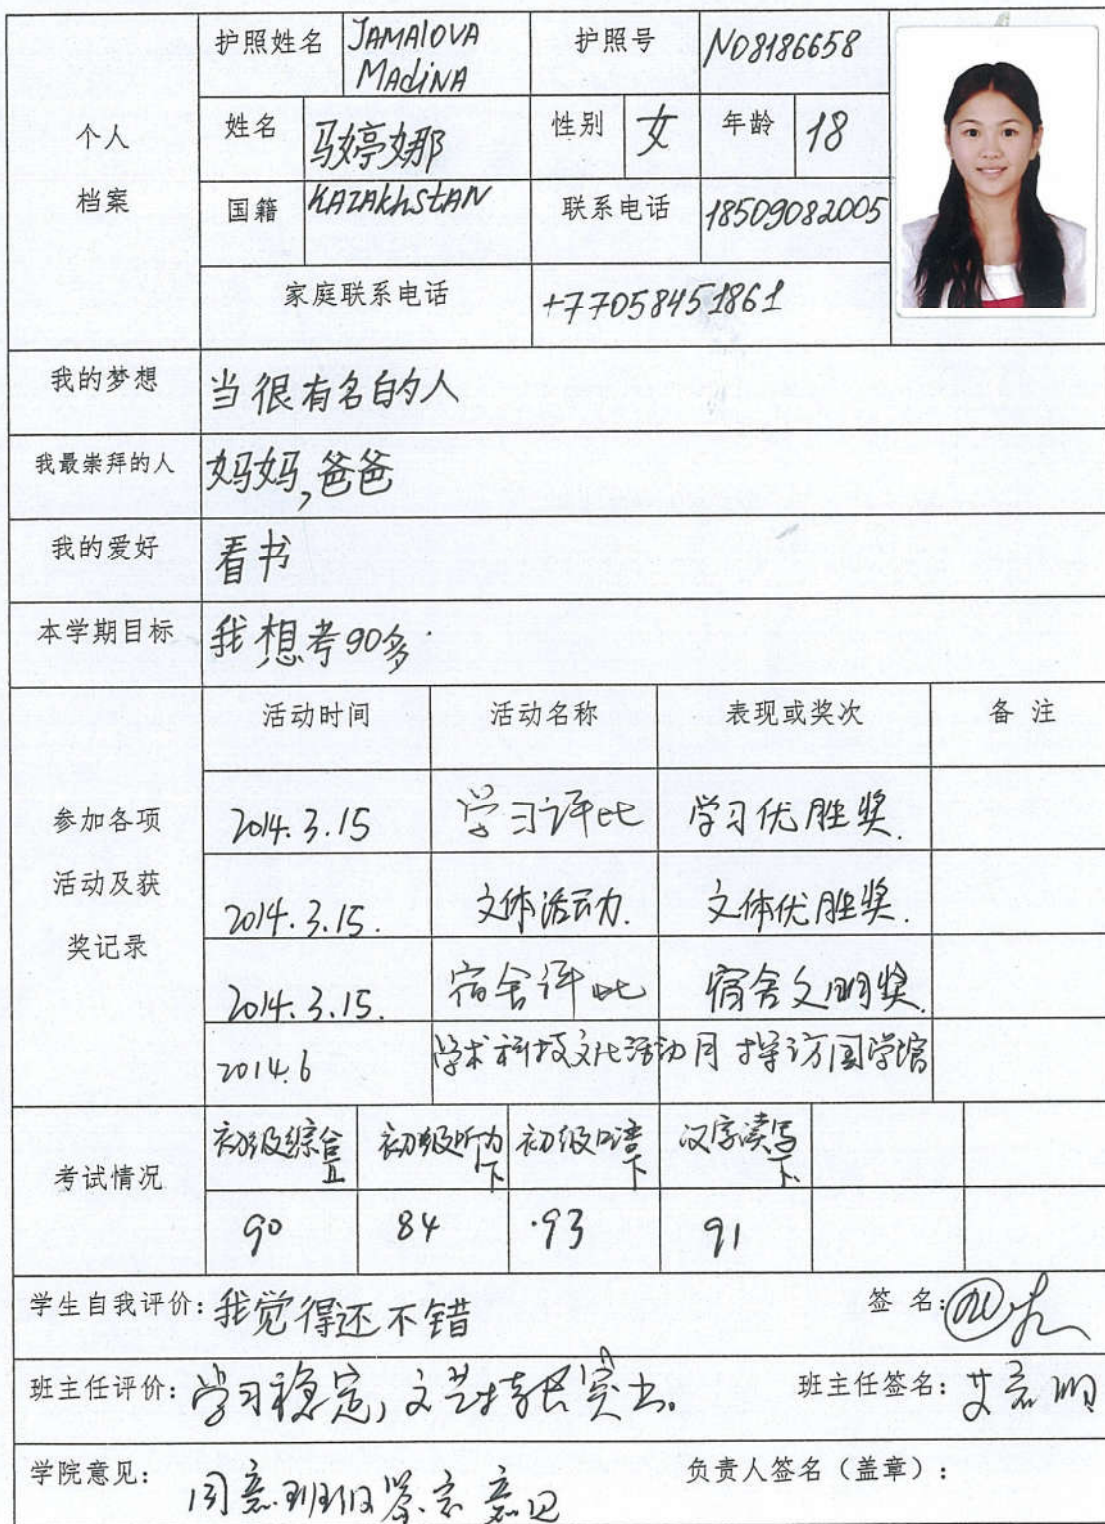 个人
档案
护照姓名 JAMAlOVA MAdiNA 护照号 N08186658
姓名 马婷娜 性别 女 年龄 18
国籍 KAZAkhStAN 联系电话 18509082005
家庭联系电话 +77058451861
我的梦想 当很有名的人
我最崇拜的人 妈妈,爸爸
我的爱好 看书
本学期目标 我想考90多.
参加各项
活动及获
奖记录
活动时间 活动名称 表现或奖次 备 注
2014.3.15 学习评比 学习优胜奖.
2014.3.15. 文体活动. 文体优胜奖.
2014.3.15. 宿舍评比 宿舍文明奖.
2014.6 学术科技文化活动月 探访国学馆
考试情况
初级综合上 初级听力下 初级口语下 汉字读写下
90 84 93 91
学生自我评价: 我觉得还不错 签 名:
班主任评价: 学习稳定, 文艺特长突出。 班主任签名:
学院意见: 同意班级 意见 负责人签名(盖章):